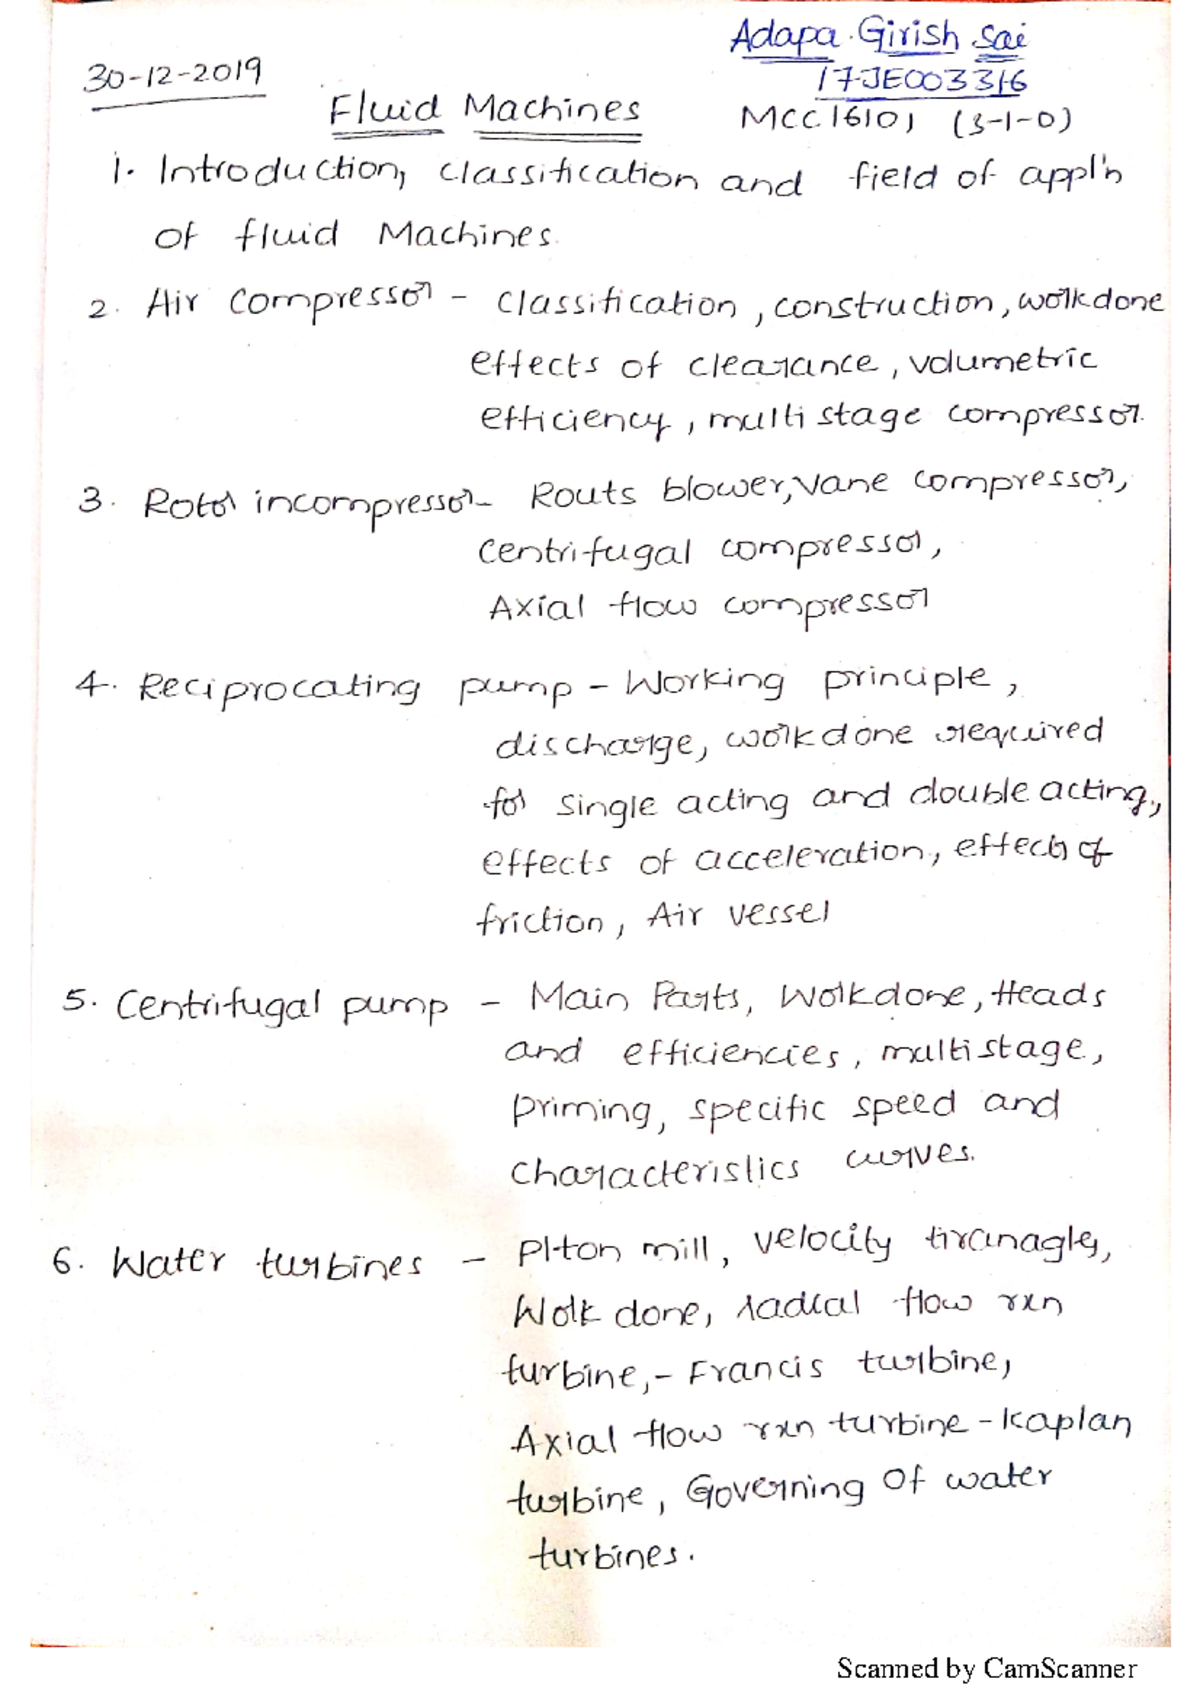 Adapa Girish Sai
30-12-2019
17JE003316
Fluid Machines
MCC16101 (3-1-0)
1. Introduction, classification and field of appl'n
of fluid Machines.
2. Air compressor - classification, construction, workdone
effects of clearance, volumetric
efficiency, multi stage compressor.
3. Rotor incompressor - Routs blower, Vane compressor,
centrifugal compressor,
Axial flow compressor
4. Reciprocating pump - Working principle,
discharge, workdone required
for single acting and double acting,
effects of acceleration, effects of
friction, Air vessel
5. Centrifugal pump - Main Parts, Workdone, Heads
and efficiencies, multistage,
priming, specific speed and
characteristics curves.
6. Water turbines - Plton mill, velocity tiranagles,
Work done, radial flow rxn
turbine, - Francis turbine,
Axial flow rxn turbine - Kaplan
turbine, Governing of water
turbines.
Scanned by CamScanner